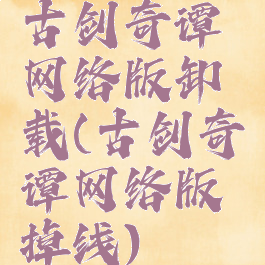 古剑奇谭
网络版卸
载(古剑奇
谭网络版
掉线)